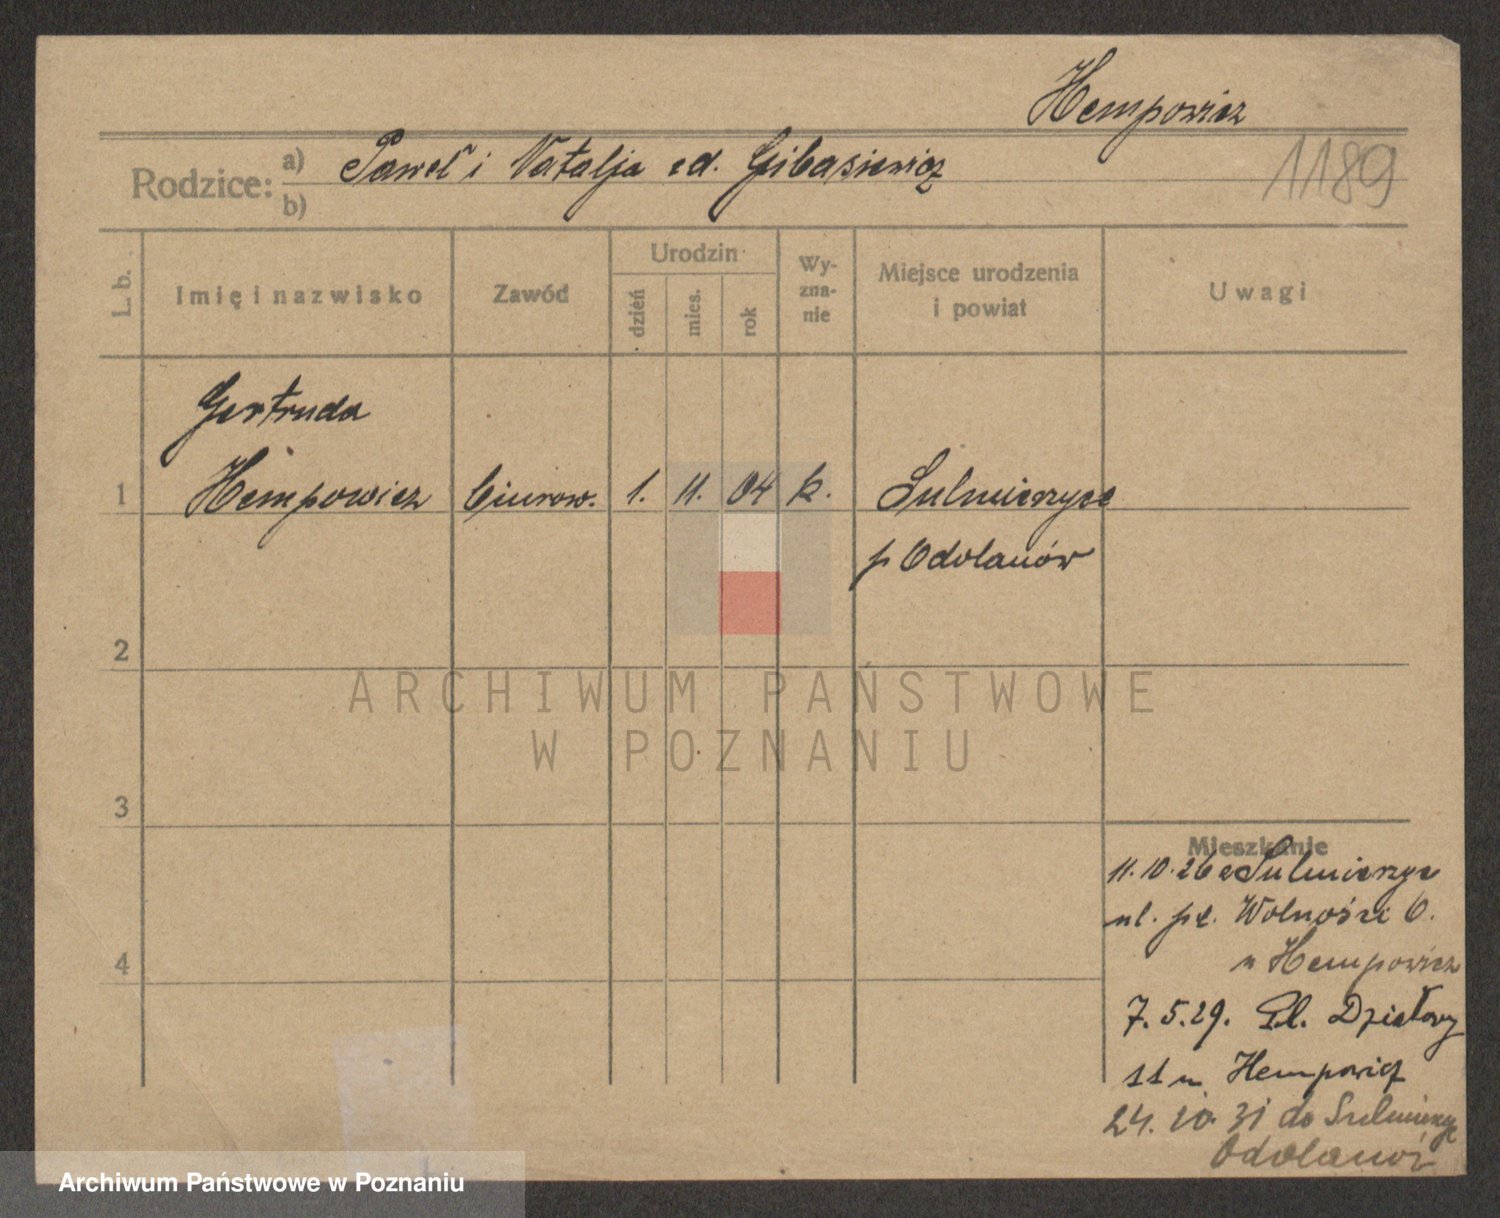 Hempowicz
1189
Rodzice: a) Paweł i Natalja zd. Gibasiewicz
b)
L. b.
Imię i nazwisko
Zawód
Urodzin
dzień
mies.
rok
Wy-
zna-
nie
Miejsce urodzenia
i powiat
Uwagi
Gertruda
1 Hempowicz biurow. 1. 11. 04 k. Sulmierzyce
p Odolanów
2
ARCHIWUM PAŃSTWOWE
W POZNANIU
3
Mieszkanie
11.10.26 z Sulmierzyc
ul. pl. Wolności 6.
u Hempowicz
4
7.5.29. Pl. Działowy
11 u Hempowicz
24.10.31 do Sulmierzyc
Odolanów
Archiwum Państwowe w Poznaniu